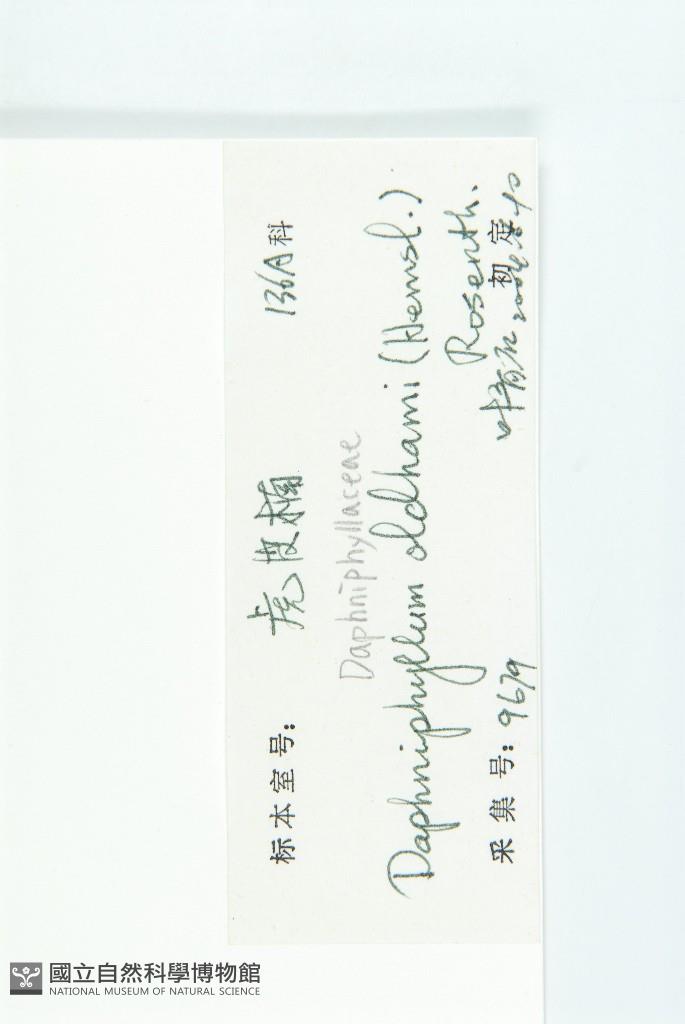 标本室号: 虎皮楠 136A科
Daphniphyllaceae
Daphniphyllum oldhami (Hemsl.)
Rosenth.
采集号: 9679 初定
國立自然科學博物館
NATIONAL MUSEUM OF NATURAL SCIENCE